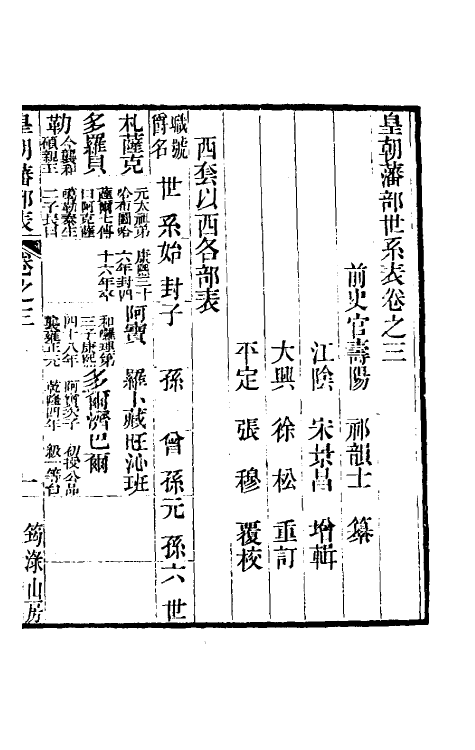 皇朝藩部世系表卷之三
前史官壽陽 祁韻士 纂
江陰 宋景昌 增輯
大興 徐松 重訂
平定 張穆 覆校
西套以西各部表
職號 爵名 世系 始封 子 孫 曾孫 元孫 六世
札薩克 元太祖弟 哈布圖哈 康熙三十 六年封四 阿寶 羅卜藏 旺沁班
多羅貝 薩爾七傳 曰阿克薩 十六年卒 和囉理第 三子康熙 多爾濟 巴爾
勒 今襲和 碩親王 噶勒泰生 二子長曰 四十八年 襲雍正元 阿寶次子 乾隆四年 初授公品 級一等台
皇朝藩部表 卷之三 一 筠淥山房